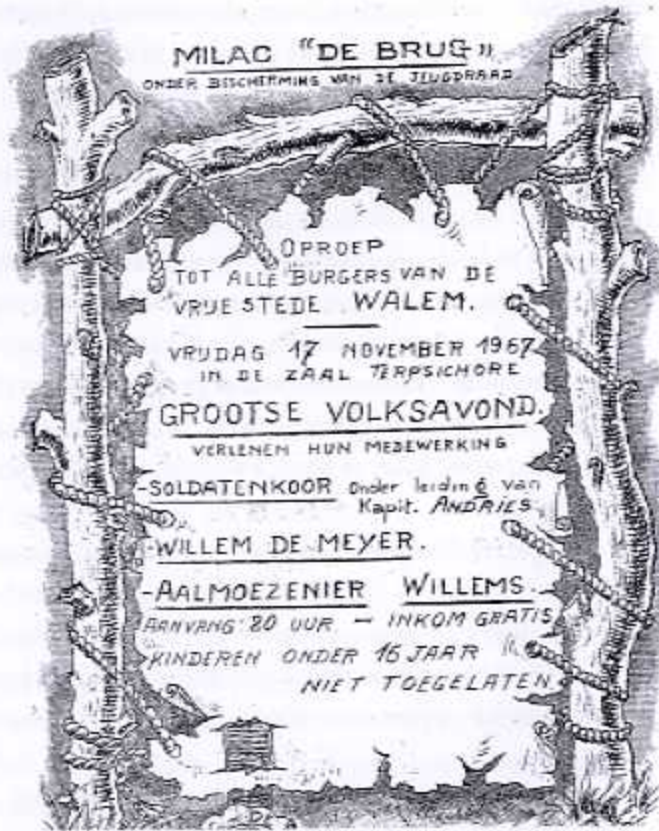 MILAC "DE BRUG"
ONDER BESCHERMING VAN DE JEUGDRAAD.
OPROEP
TOT ALLE BURGERS VAN DE
VRIJE STEDE WALEM.
VRIJDAG 17 NOVEMBER 1967
IN DE ZAAL TERPSICHORE
GROOTSE VOLKSAVOND.
VERLENEN HUN MEDEWERKING
-SOLDATENKOOR Onder leiding van
Kapit. ANDRIES.
-WILLEM DE MEYER.
-AALMOEZENIER WILLEMS.
AANVANG 20 UUR - INKOM GRATIS
KINDEREN ONDER 16 JAAR
NIET TOEGELATEN